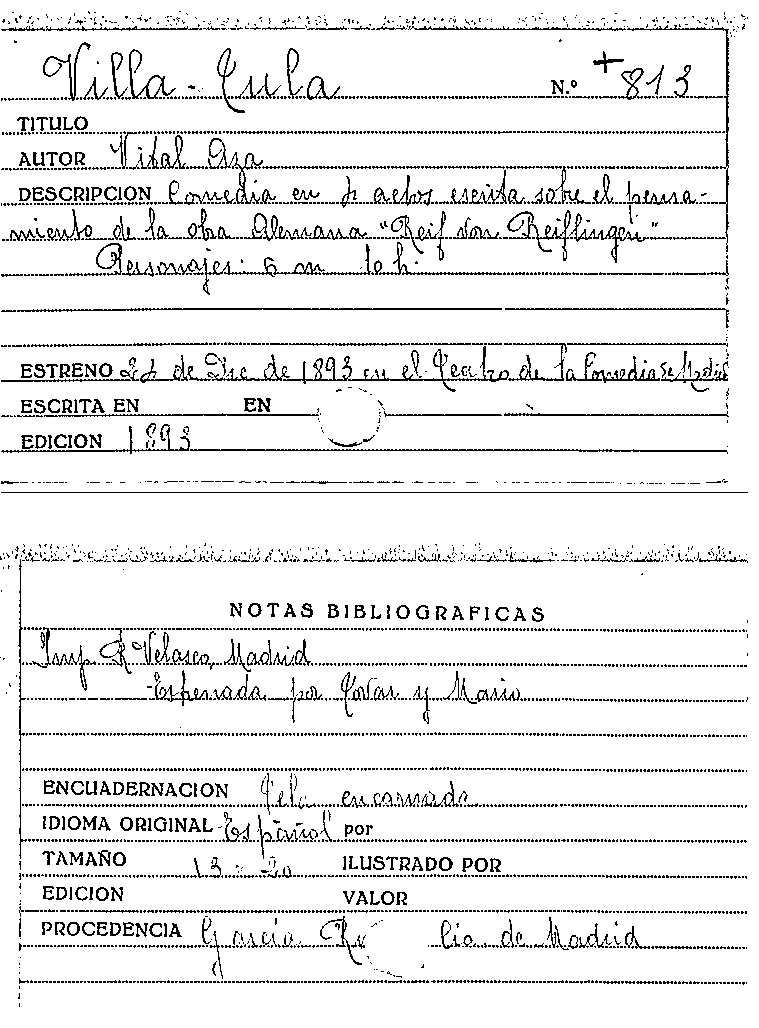 Villa-Tula N.º +813
TITULO
AUTOR Vital Aza
DESCRIPCION Comedia en 4 actos escrita sobre el pensa-
miento de la obra Alemana "Reif von Reiflingen"
Personajes: 6 m 10 h.
ESTRENO 24 de Dic de 1893 en el Teatro de la Comedia de Madrid
ESCRITA EN EN
EDICION 1893
NOTAS BIBLIOGRAFICAS
Imp R Velasco, Madrid
Estrenada por Tovar y Mario
ENCUADERNACION Tela encarnada
IDIOMA ORIGINAL Español por
TAMAÑO 13 x 20 ILUSTRADO POR
EDICION VALOR
PROCEDENCIA García de Madrid